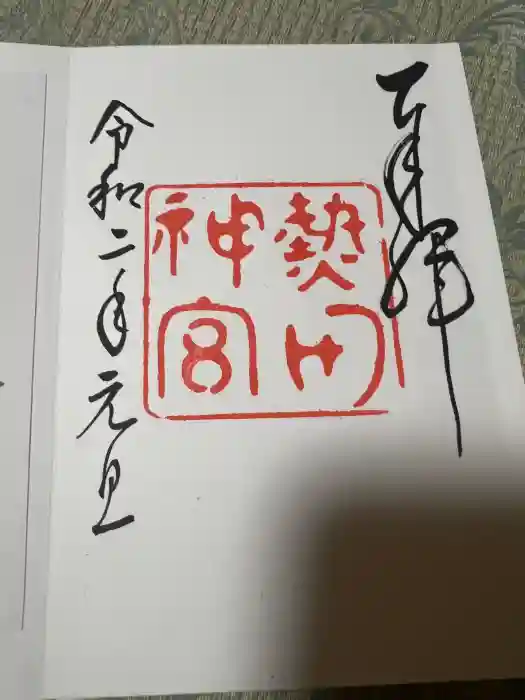 奉拝
熱田
神宮
令和二年元旦